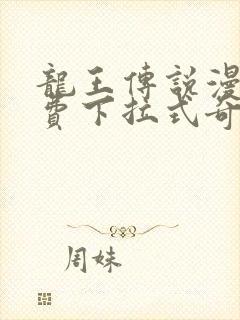 龍王傳說漫
費下拉式奇
周妹